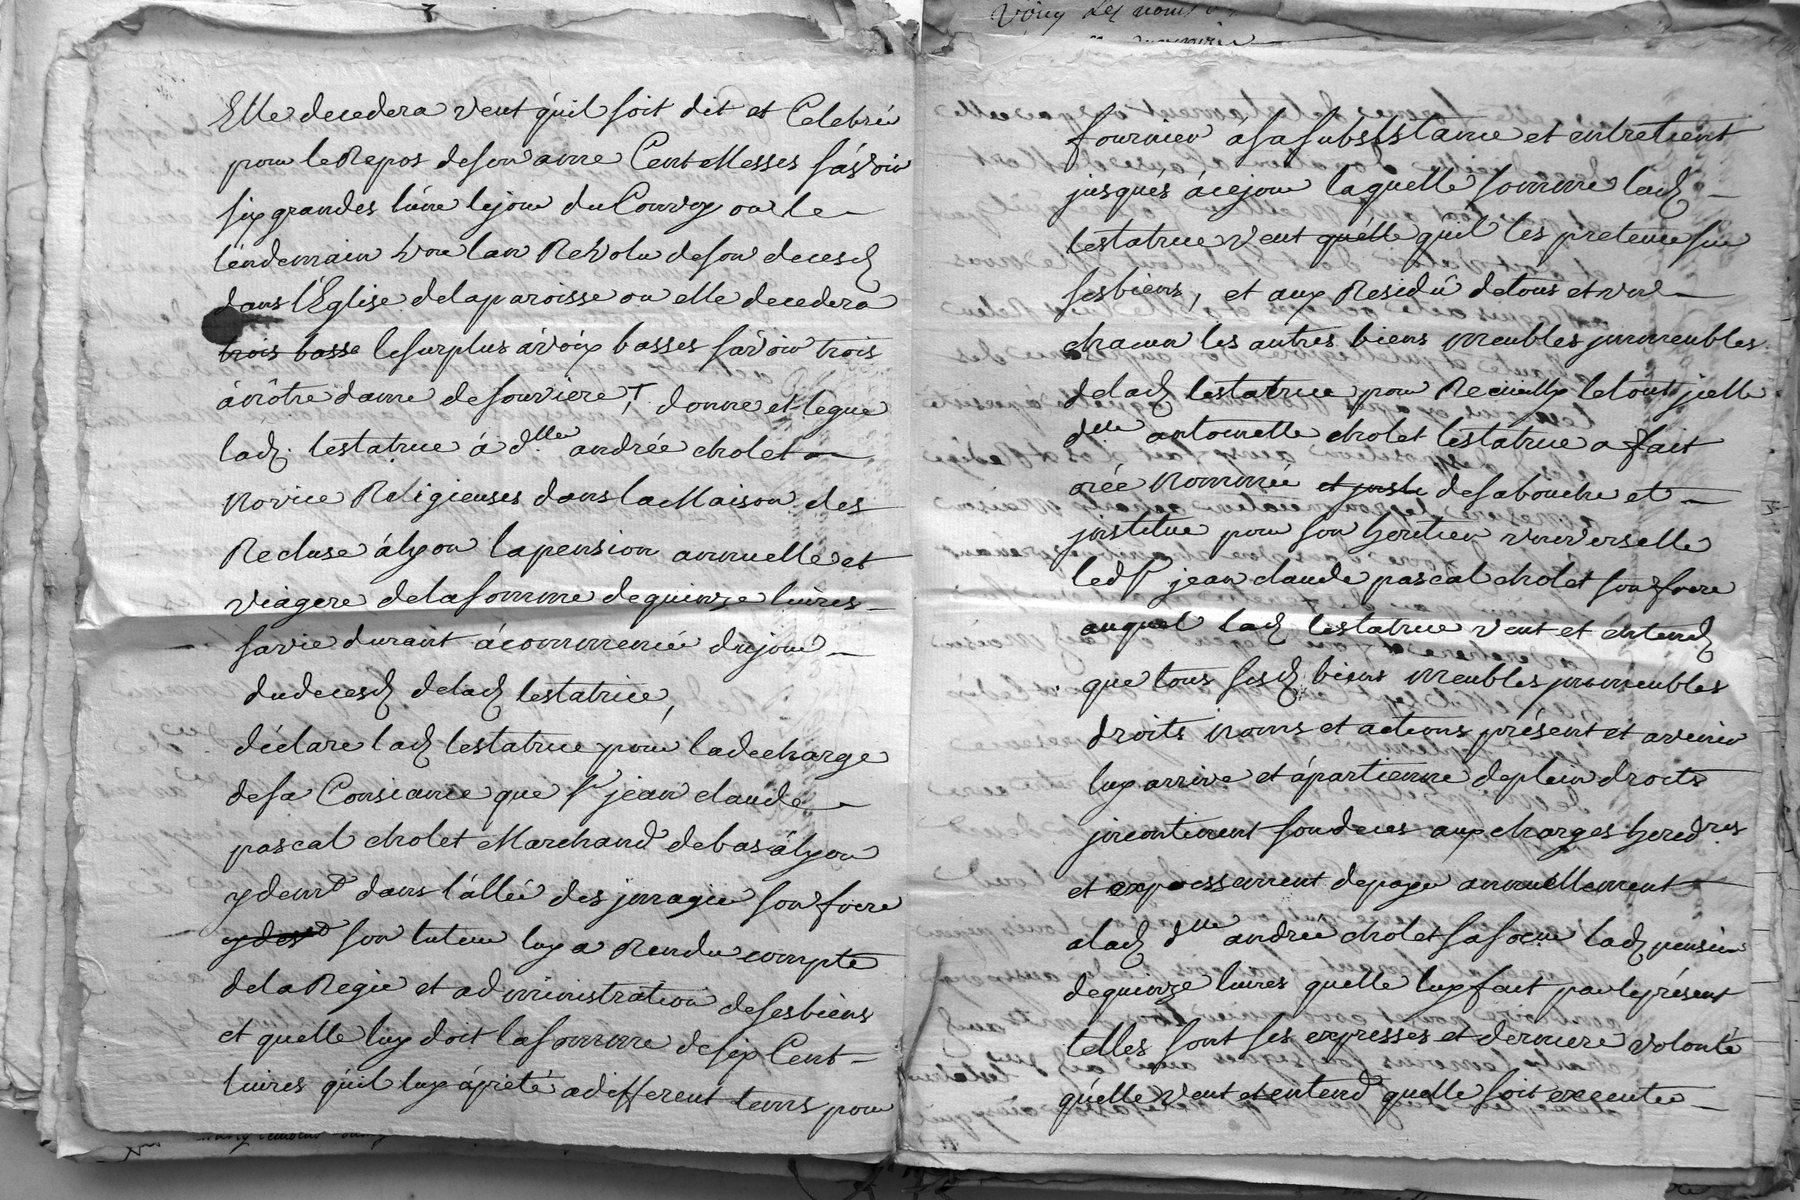 Elle decedera veut qu'il soit dit et Celebré
pour le Repos de son ame Cent Messes sçavoir
six grandes l'une le jour du Convoy ou le
lendemain l'an Revolu de son decesd
dans l'Eglise de la paroisse ou elle decedera
trois basse le surplus a voix basses savoir trois
a nôtre dame de fourviere, donne et legue
lad. testatrice á d.lle andrée cholet
Novice Religieuses dans la Maison des
Recluse á lyon la pension annuelle et
viagere de la somme de quinze livres
sa vie durant á commencé du jour
du decesd de lad testatrice,
déclare lad testatrice pour la decharge
de sa Consiance que Sr jean claude
pascal cholet Marchand de bas á lyon
y demt dans l'állée des jmages son frere
son tuteur luy a Rendu compte
de la Regie et administration de ses biens
et quelle luy doit la somme de six Cent
livres qu'il luy á preté a differént tems pour
fournier a sa subsistance et entretient
jusqués á ce jour laquelle somme lad
testatrice veut quelle qu'il les pretenne sur
ses biens, et aux Residû de tous et un
chacun les autres biens meubles jmmeubles
de lad testatrice pour Recueillyr le tout jcelle
dlle antoinette cholet testatrice a fait
créé Nommée et juste de sa bouche et
jnstitue pour son heritier universelle
led Sr jean claude pascal cholet son frere
auquel lad testatrice veut et entend
que tous sesd biens meubles jmmeubles
droits noms et actions présent et avenir
luy arrive et ápartienne de plein droits
jncontinent son deces aux charges heredres
et expressement de payer annuellement
a lad dlle andrée cholet sa soeur lad pension
de quinze livres quelle luy fait par le présent
telles sont ses expresses et derniere volonté
qu'elle veut et entend quelle soit executée